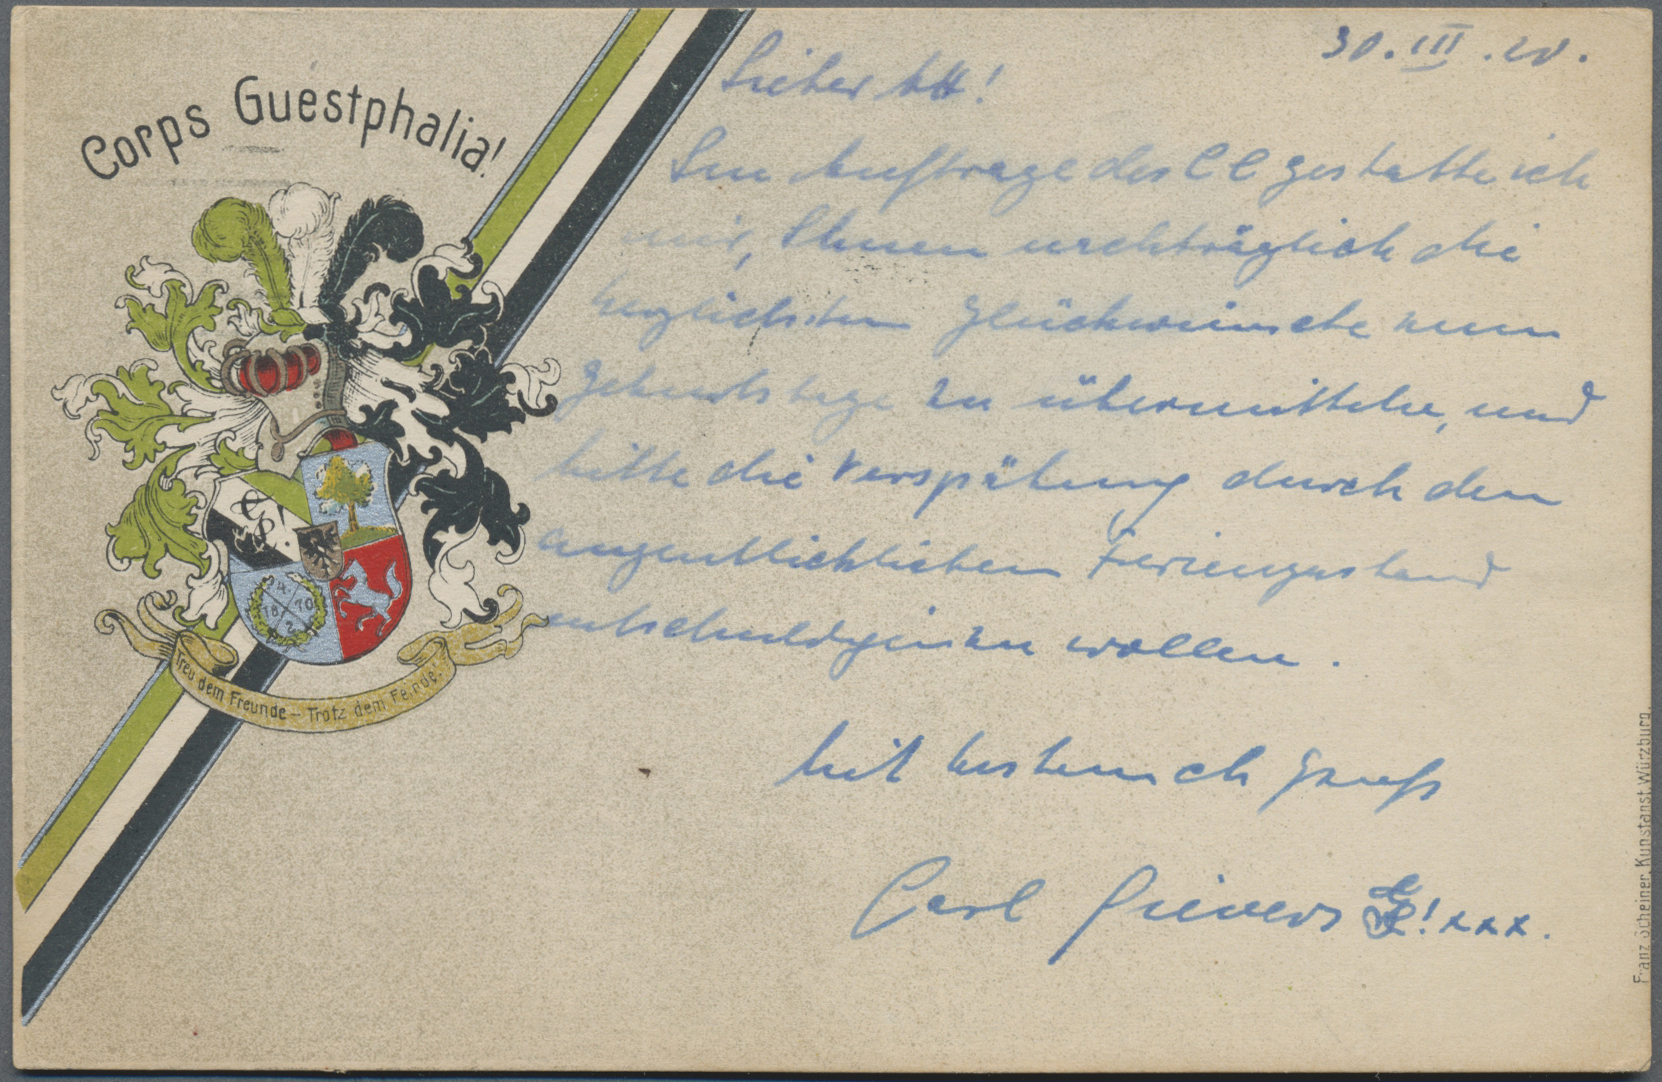 Corps Guestphalia!
30.III.20.
Lieber AH!
Im Auftrage des CC gestatte ich
mir, Ihnen nachträglich die
herzlichsten Glückwünsche zum
Geburtstage zu übermitteln, und
bitte die Verspätung durch den
augenblicklichen Ferienzustand
entschuldigen zu wollen.
Mit bestem Gruß
Carl xxx.
18 70
2
Treu dem Freunde – Trotz dem Feinde!
Franz Scheiner, Kunstanst. Würzburg.